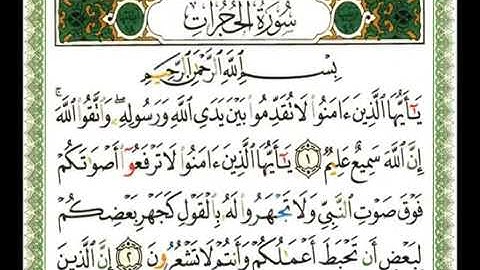 سُورَةُ الحُجُرَات
بِسْمِ اللَّهِ الرَّحْمَٰنِ الرَّحِيمِ
يَٰٓأَيُّهَا الَّذِينَ ءَامَنُوا۟ لَا تُقَدِّمُوا۟ بَيْنَ يَدَيِ اللَّهِ وَرَسُولِهِۦۖ وَاتَّقُوا۟ اللَّهَۚ
إِنَّ اللَّهَ سَمِيعٌ عَلِيمٌ ١ يَٰٓأَيُّهَا الَّذِينَ ءَامَنُوا۟ لَا تَرْفَعُوٓا۟ أَصْوَٰتَكُمْ
فَوْقَ صَوْتِ النَّبِيِّ وَلَا تَجْهَرُوا۟ لَهُۥ بِالْقَوْلِ كَجَهْرِ بَعْضِكُمْ
لِبَعْضٍ أَن تَحْبَطَ أَعْمَٰلُكُمْ وَأَنتُمْ لَا تَشْعُرُونَ ٢ إِنَّ الَّذِينَ